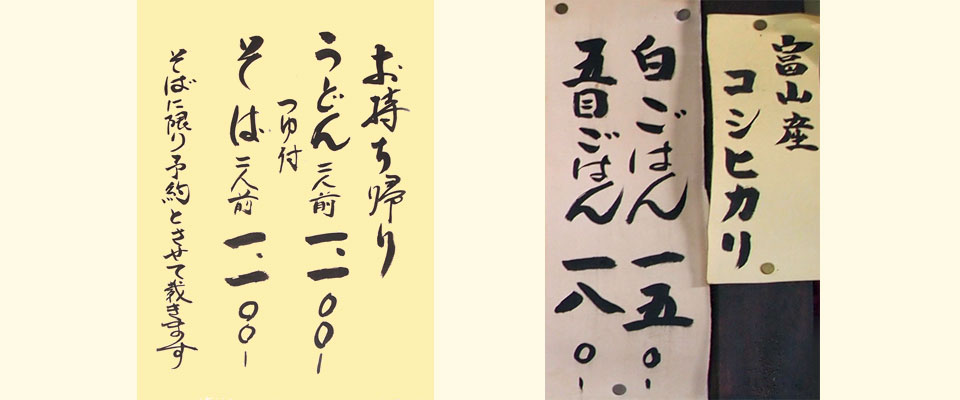 お持ち帰り
うどん二人前 一、一〇〇ー
つゆ付
そば二人前 一、一〇〇ー
そばに限り予約とさせて裁きます
富山産
コシヒカリ
白ごはん 一五〇ー
五目ごはん 一八〇ー